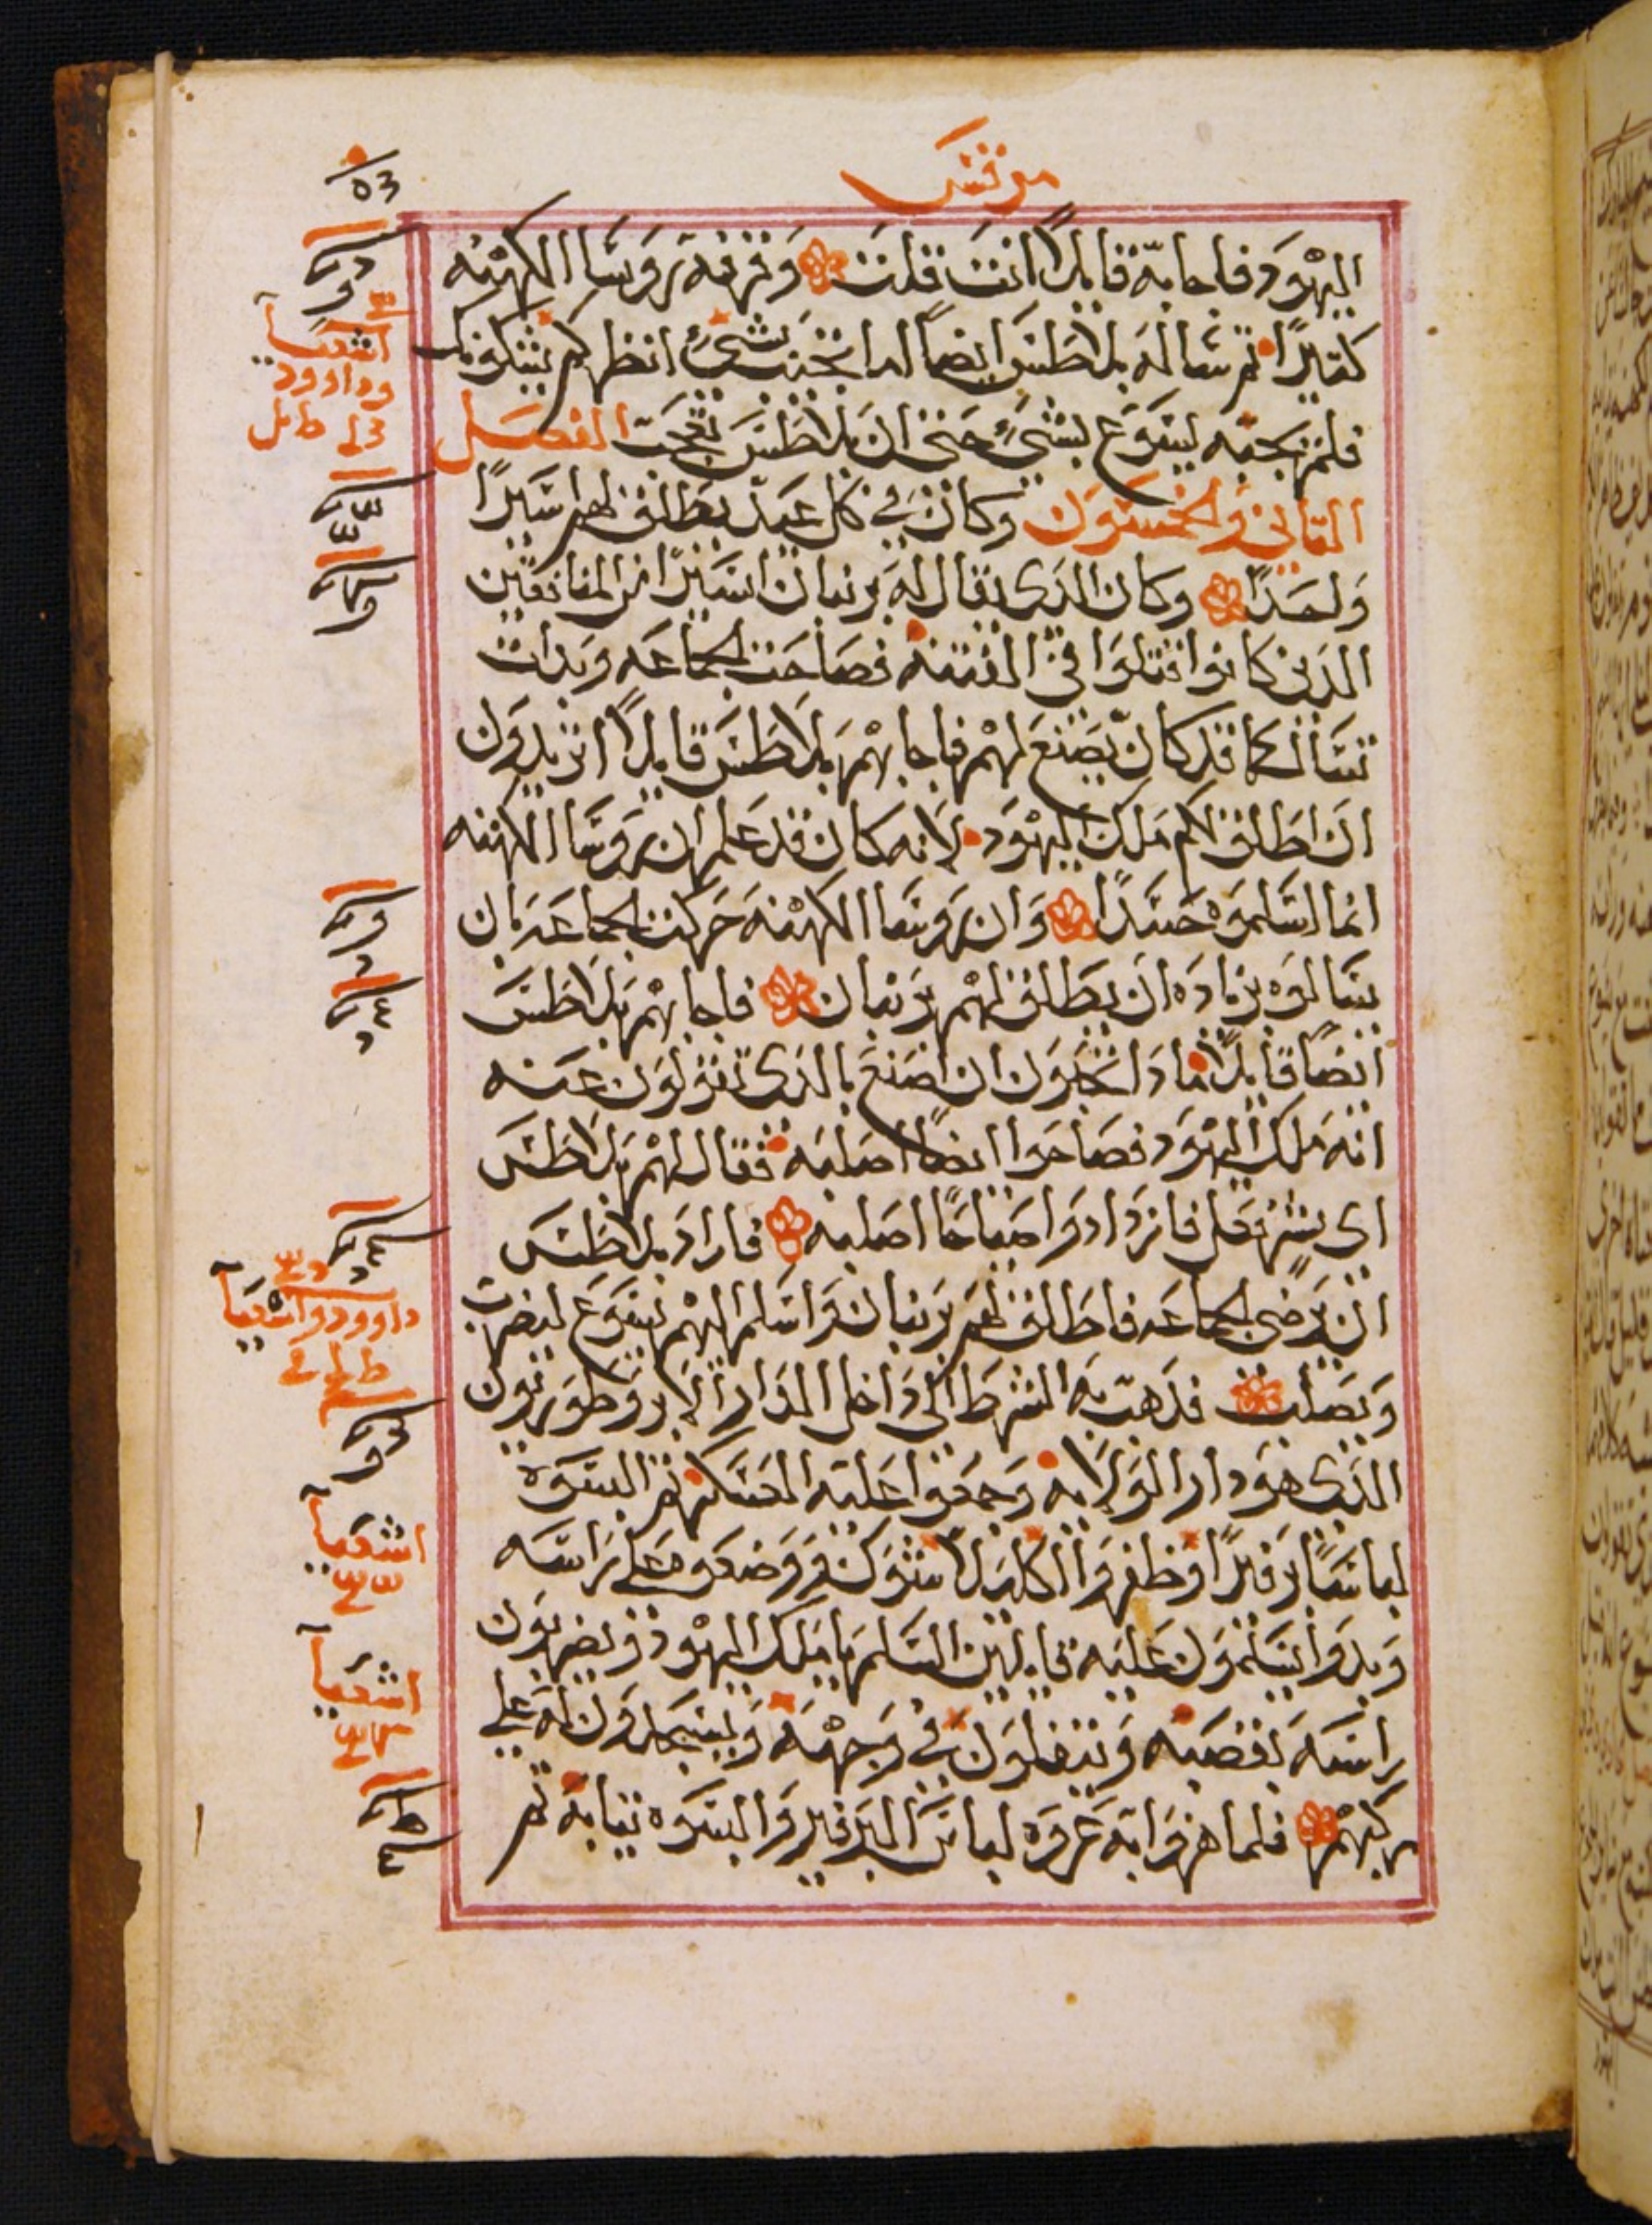 مرقس
اليهود فاجابه قايلاً انت قلت وقرفه روسا الكهنه
كثيرًا ثم ساله بلاطس ايضاً اما تجيب بشىء انظر كم يشكونك
فلم يجبه يسوع بشىء حتى ان بلاطس تعجب الفصل
الثانى والخمسون وكان فى كل عيد يطلق لهم اسيرًا
واحدًا وكان الذى يقال له برنبان اسيرًا من المنافقين
الذين كانوا قتلوا فى الفتنه فصاحت الجماعه وبدات
تسال كما قد كان يصنع لهم فاجابهم بلاطس قايلاً اتريدون
ان اطلق لكم ملك اليهود لانه كان قد علم ان روسا الكهنه
انما اسلموه حسدًا وان روسا الكهنه حركت الجماعه بان
يسالوه بزياده ان يطلق لهم برنبان فاجابهم بلاطس
ايضًا قايلاً ماذا تحبون ان اصنع بالذى تقولون عنه
انه ملك اليهود فصاحوا ايضاً اصلبه فقال لهم بلاطس
اى شر فعل فازدادوا صياحًا اصلبه فاراد بلاطس
ان يرضى الجماعه فاطلق لهم برنبان واسلم اليهم يسوع ليضرب
ويصلب فذهب به الشرط الى داخل الدار الابروطوريون
الذى هو دار الولايه وجمعوا عليه العسكر ثم البسوه
لباسًا برفيرًا وظفروا اكليلا شوك ووضعوه على راسه
وبدوا يسلمون عليه قايلين السلم يا ملك اليهود ويضربون
راسه بقصبه ويتفلون فى وجهه ويسجدون له على
ركبهم فلما هزوا به عروه لباس البرفير والبسوه ثيابه ثم
اشعيا
وداوود
داوود واشعيا
اشعيا
اشعيا